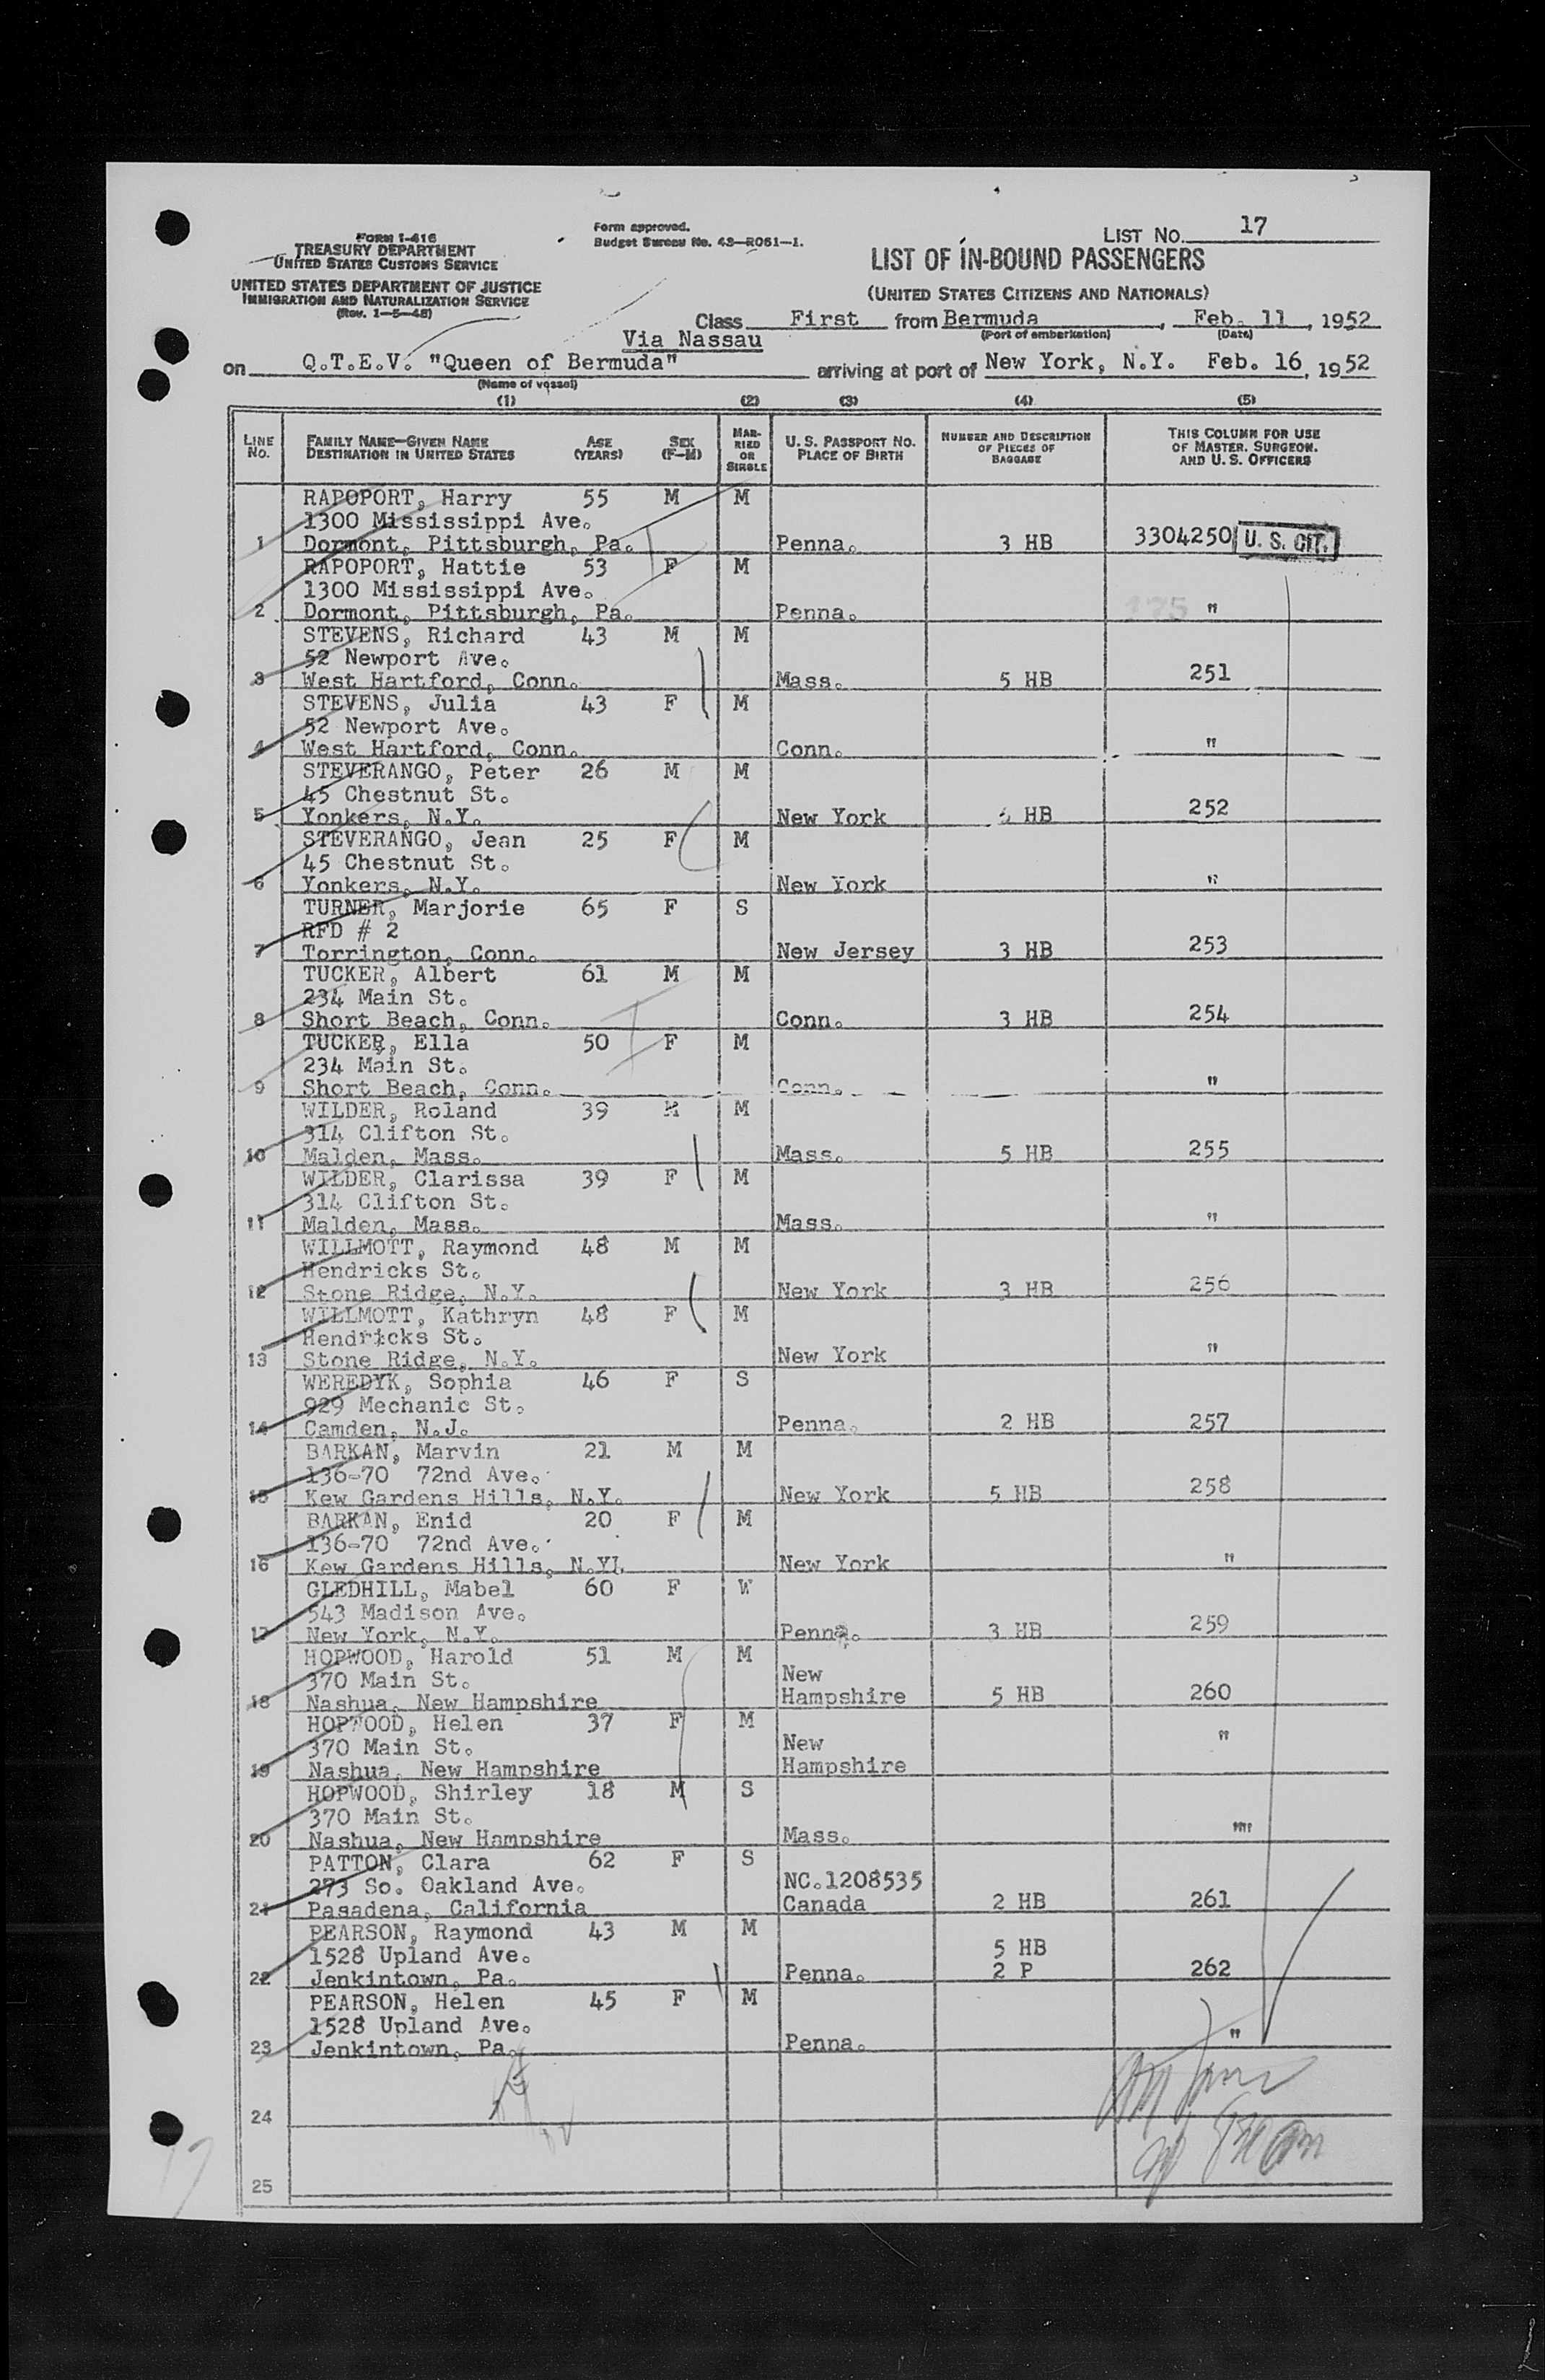 LIST NO. 17
FORM I-416
TREASURY DEPARTMENT
UNITED STATES CUSTOMS SERVICE
UNITED STATES DEPARTMENT OF JUSTICE
IMMIGRATION AND NATURALIZATION SERVICE
(Rev. 1-5-48)
Form approved.
Budget Bureau No. 43-R061-1.
LIST OF IN-BOUND PASSENGERS
(UNITED STATES CITIZENS AND NATIONALS)
Class First from Bermuda, Feb. 11, 1952
(Port of embarkation) (Date)
Via Nassau
on Q.T.E.V. "Queen of Bermuda" arriving at port of New York, N.Y. Feb. 16, 1952
(Name of vessel)
(1) (2) (3) (4) (5)
LINE NO. FAMILY NAME—GIVEN NAME DESTINATION IN UNITED STATES AGE (YEARS) SEX (F-M) MARRIED OR SINGLE U. S. PASSPORT NO. PLACE OF BIRTH NUMBER AND DESCRIPTION OF PIECES OF BAGGAGE THIS COLUMN FOR USE OF MASTER, SURGEON, AND U. S. OFFICERS
RAPOPORT, Harry 55 M M
1300 Mississippi Ave.
1 Dormont, Pittsburgh, Pa. Penna. 3 HB 3304250 U. S. CIT.
RAPOPORT, Hattie 53 F M
1300 Mississippi Ave.
2 Dormont, Pittsburgh, Pa. Penna. "
STEVENS, Richard 43 M M
52 Newport Ave.
3 West Hartford, Conn. Mass. 5 HB 251
STEVENS, Julia 43 F M
52 Newport Ave.
4 West Hartford, Conn. Conn. "
STEVERANGO, Peter 26 M M
45 Chestnut St.
5 Yonkers, N.Y. New York HB 252
STEVERANGO, Jean 25 F M
45 Chestnut St.
6 Yonkers, N.Y. New York "
TURNER, Marjorie 65 F S
RFD # 2
7 Torrington, Conn. New Jersey 3 HB 253
TUCKER, Albert 61 M M
234 Main St.
8 Short Beach, Conn. Conn. 3 HB 254
TUCKER, Ella 50 F M
234 Main St.
9 Short Beach, Conn. Conn. "
WILDER, Roland 39 M M
314 Clifton St.
10 Malden, Mass. Mass. 5 HB 255
WILDER, Clarissa 39 F M
314 Clifton St.
11 Malden, Mass. Mass. "
WILLMOTT, Raymond 48 M M
Hendricks St.
12 Stone Ridge, N.Y. New York 3 HB 256
WILLMOTT, Kathryn 48 F M
Hendricks St.
13 Stone Ridge, N.Y. New York "
WEREDYK, Sophia 46 F S
929 Mechanic St.
14 Camden, N.J. Penna. 2 HB 257
BARKAN, Marvin 21 M M
136-70 72nd Ave.
15 Kew Gardens Hills, N.Y. New York 5 HB 258
BARKAN, Enid 20 F M
136-70 72nd Ave.
16 Kew Gardens Hills, N.Y. New York "
GLEDHILL, Mabel 60 F W
543 Madison Ave.
17 New York, N.Y. Penna. 3 HB 259
HOPWOOD, Harold 51 M M
370 Main St. New
18 Nashua, New Hampshire Hampshire 5 HB 260
HOPWOOD, Helen 37 F M
370 Main St. New "
19 Nashua, New Hampshire Hampshire
HOPWOOD, Shirley 18 M S
370 Main St.
20 Nashua, New Hampshire Mass. ""
PATTON, Clara 62 F S
273 So. Oakland Ave. NC.1208535
21 Pasadena, California Canada 2 HB 261
PEARSON, Raymond 43 M M
1528 Upland Ave. 5 HB
22 Jenkintown, Pa. Penna. 2 P 262
PEARSON, Helen 45 F M
1528 Upland Ave.
23 Jenkintown, Pa. Penna. "
24
25
17